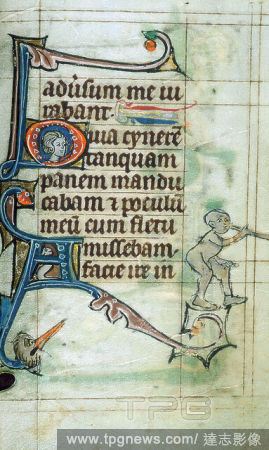 adũsum me iu
rabant.
Quia cynerẽ
tanquam
panem mandu
cabam ⁊ poculũ
meũ cum fletu
miscebam.
facie ire in
TPG
www.tpgnews.com/達志影像